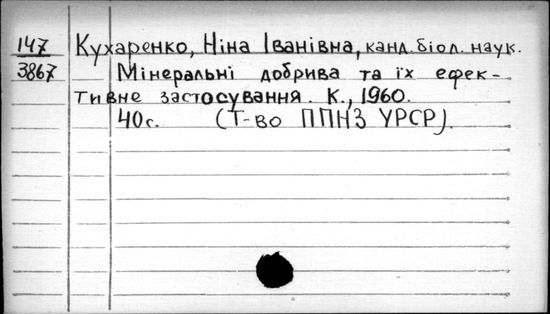 147 Кухаренко, Ніна Іванівна, канд. біол. наук.
3867 Мінеральні добрива та їх ефек-
тивне застосування. К., 1960.
40с. (Т-во ППНЗ УРСР).